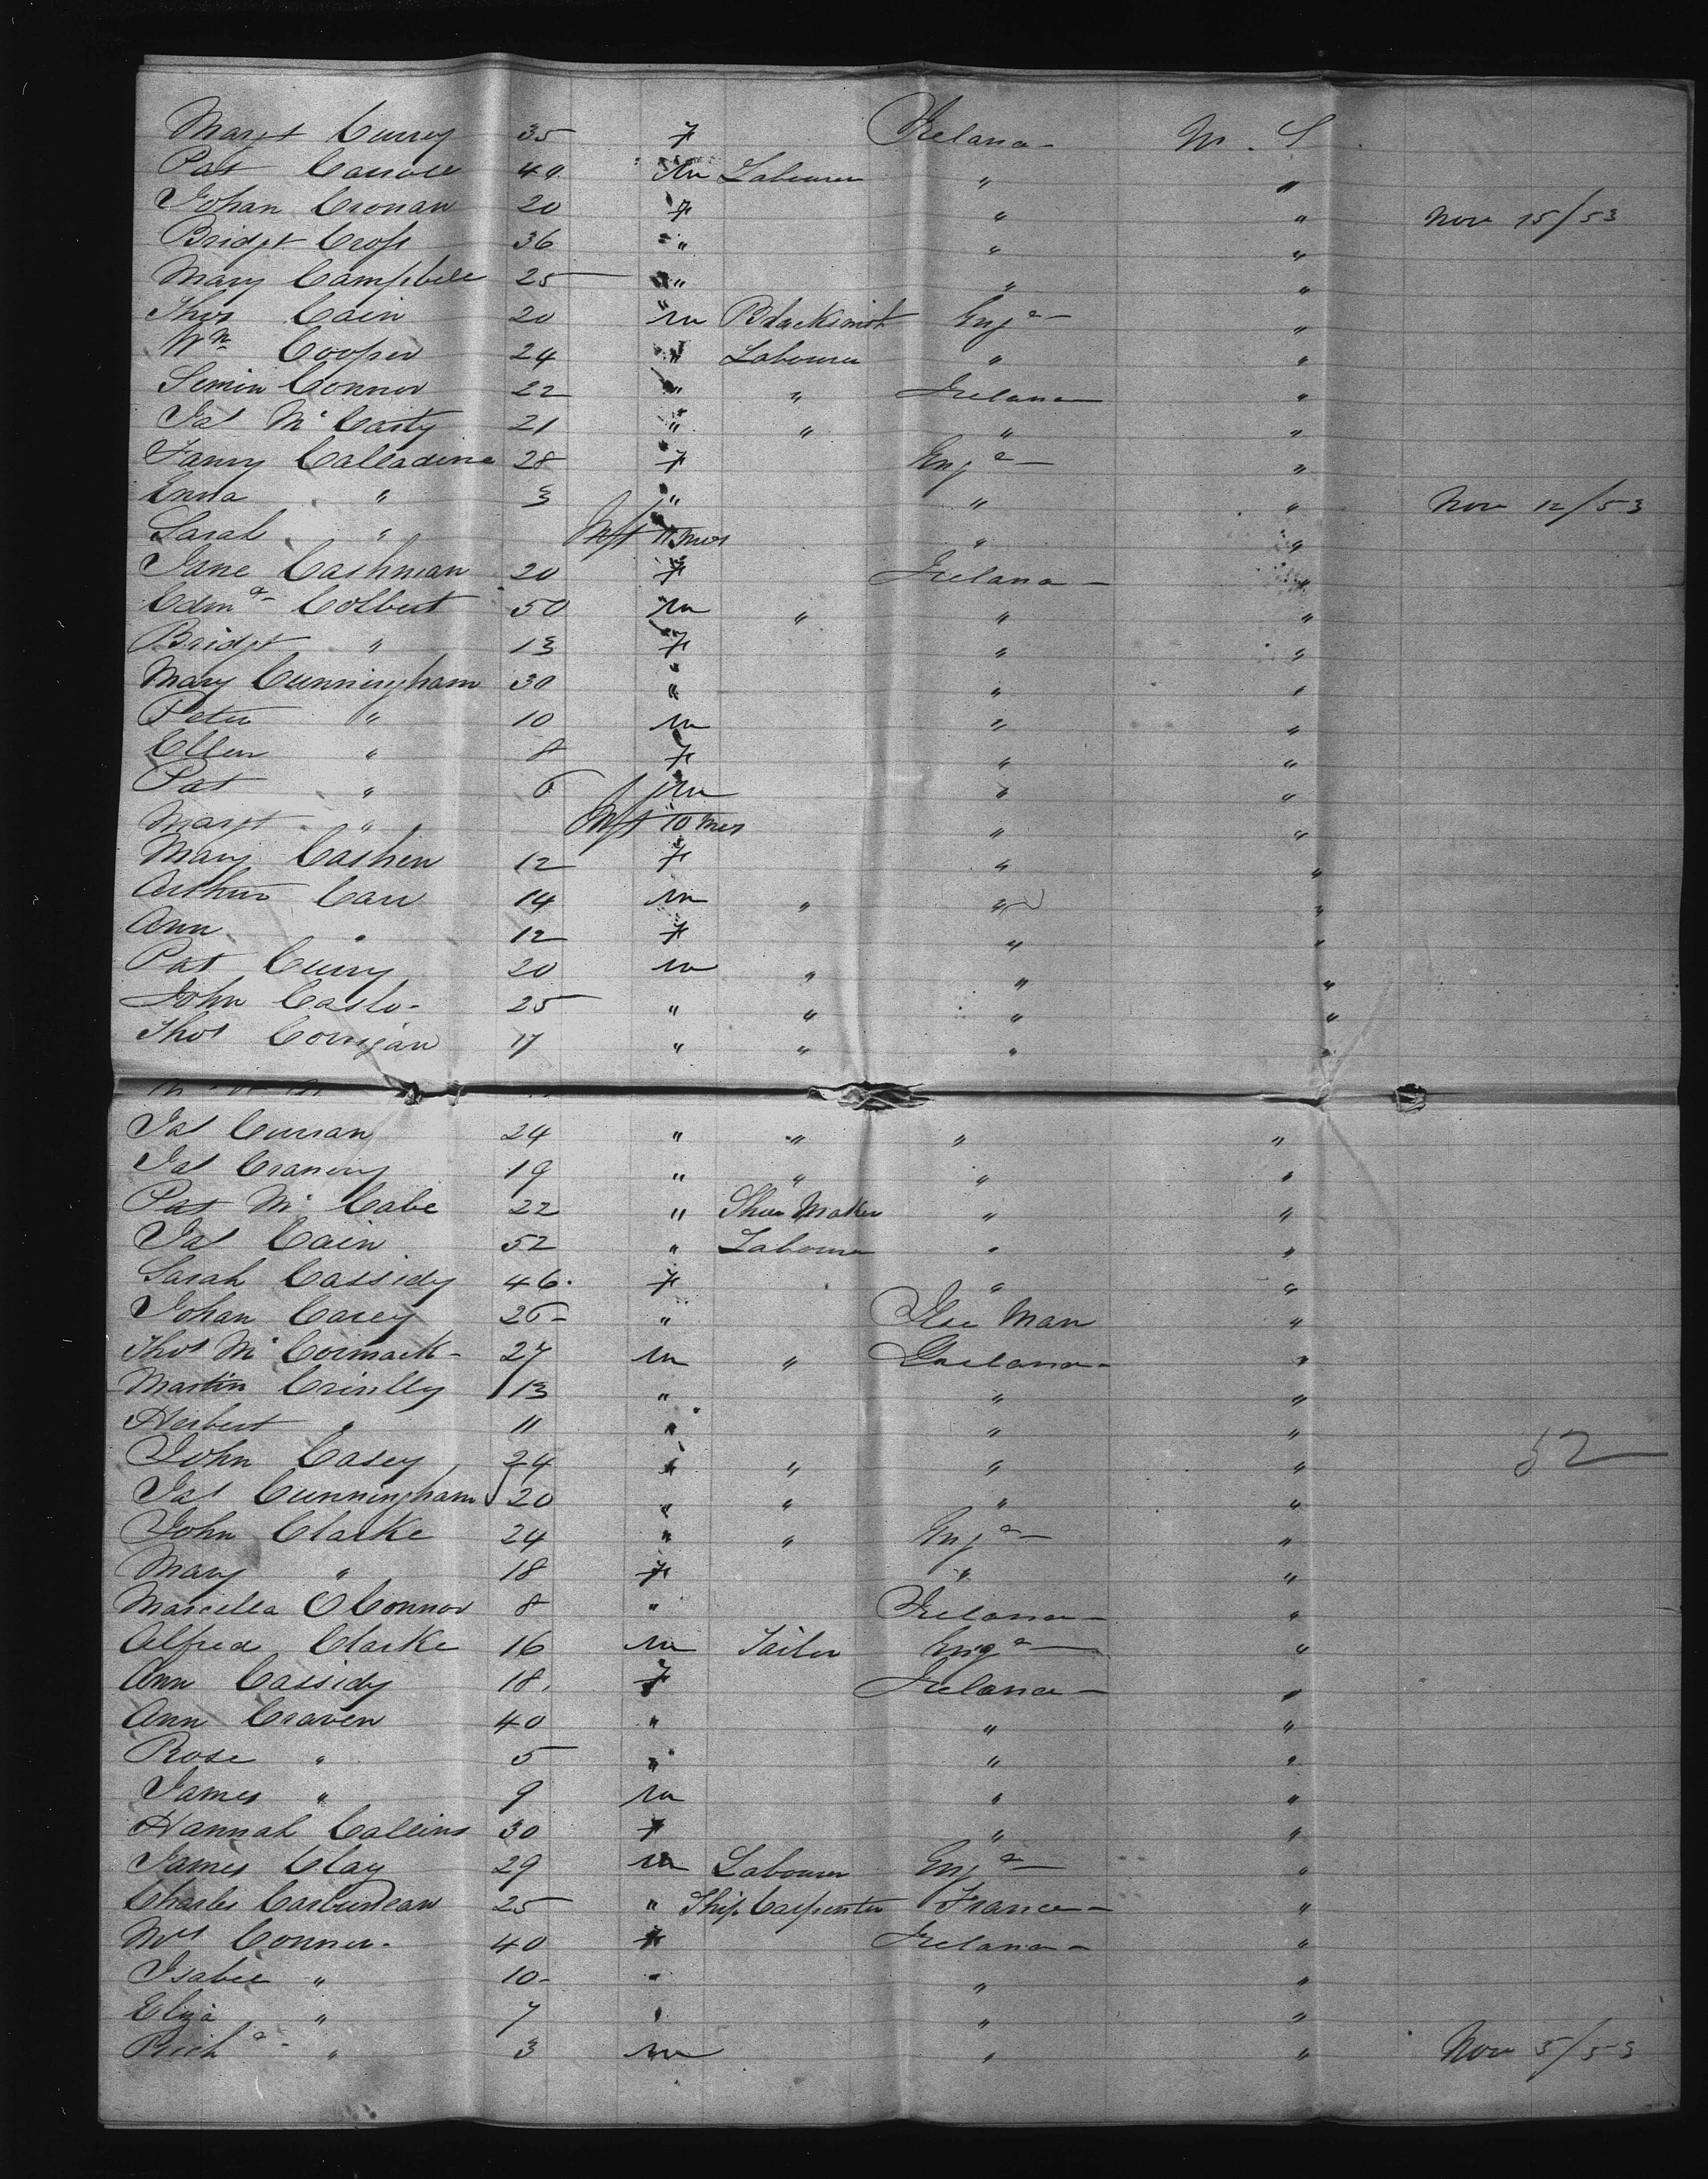 Margt Currey 35 F Ireland U. S
Pat Carroll 40 M Labourer " "
Johan Cronan 20 F " " Nov 15/53
Bridgt Cross 36 " " "
Mary Campbell 25 " " "
Thos Cain 20 M Blacksmith Engd "
Wm Cooper 24 " Labourer " "
Simin Connor 22 " " Ireland "
Jas McCarty 21 " " " "
Fanny Calladine 28 F Engd "
Emma " 3 " " " Nov 12/53
Sarah " Inft 11 mos " "
Jane Cashman 20 F Ireland "
Edmd Colbert 50 M " " "
Bridgt " 13 F " "
Mary Cunningham 30 " " "
Peter " 10 M " "
Ellen " 8 F " "
Pat " 6 M " "
Margt " Inft 10 mos " "
Mary Cashen 12 F " "
Arthur Carr 14 M " " "
Ann " 12 F " "
Pat Curry 20 M " " "
John Caslo- 25 " " " "
Thos Corrigan 17 " " " "
Jas Curran 24 " " " "
Jas Cranery 19 " " " "
Pat McCabe 22 " Shoe Maker " "
Jas Cain 52 " Labourer " "
Sarah Cassidy 46 F " "
Johan Carey 26 " Isle Man "
Thos McCormack 27 M " Ireland "
Martin Crinlly 13 " " "
Herbert " 11 " " "
John Casey 24 " " " " 52
Jas Cunningham 20 " " " "
John Clarke 24 " " Engd "
Mary " 18 F " "
Marcella O Connor 8 " Ireland "
Alfred Clarke 16 M Tailor Engd "
Ann Cassidy 18 F Ireland "
Ann Craven 40 " " "
Rose " 5 " " "
James " 9 M " "
Hannah Collins 30 F " "
James Clay 29 M Labourer Engd "
Charles 25 " Ship Carpenter France "
Mrs Conner 40 F Ireland "
Isabel " 10 " " "
Eliza " 7 " " "
Richd " 3 M " " Nov 5/53